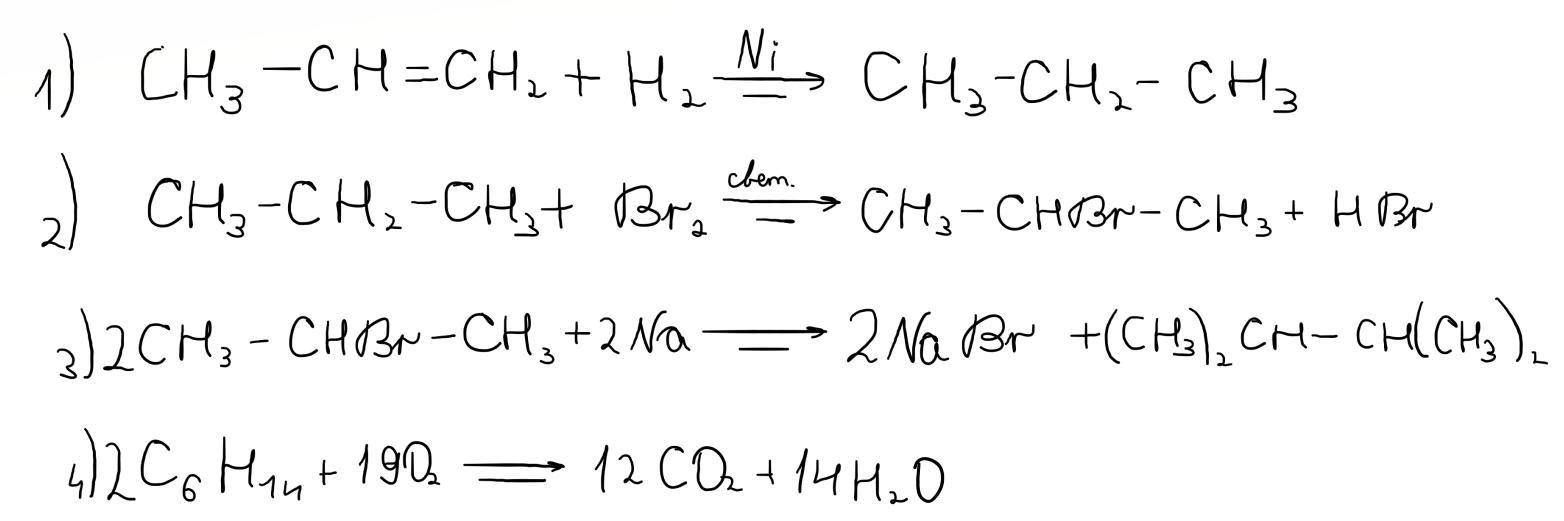 1) CH₃-CH=CH₂ + H₂ Ni → CH₃-CH₂-CH₃
2) CH₃-CH₂-CH₃ + Br₂ свет. → CH₃-CHBr-CH₃ + HBr
3) 2CH₃-CHBr-CH₃ + 2Na → 2NaBr + (CH₃)₂CH-CH(CH₃)₂
4) 2C₆H₁₄ + 19O₂ → 12CO₂ + 14H₂O